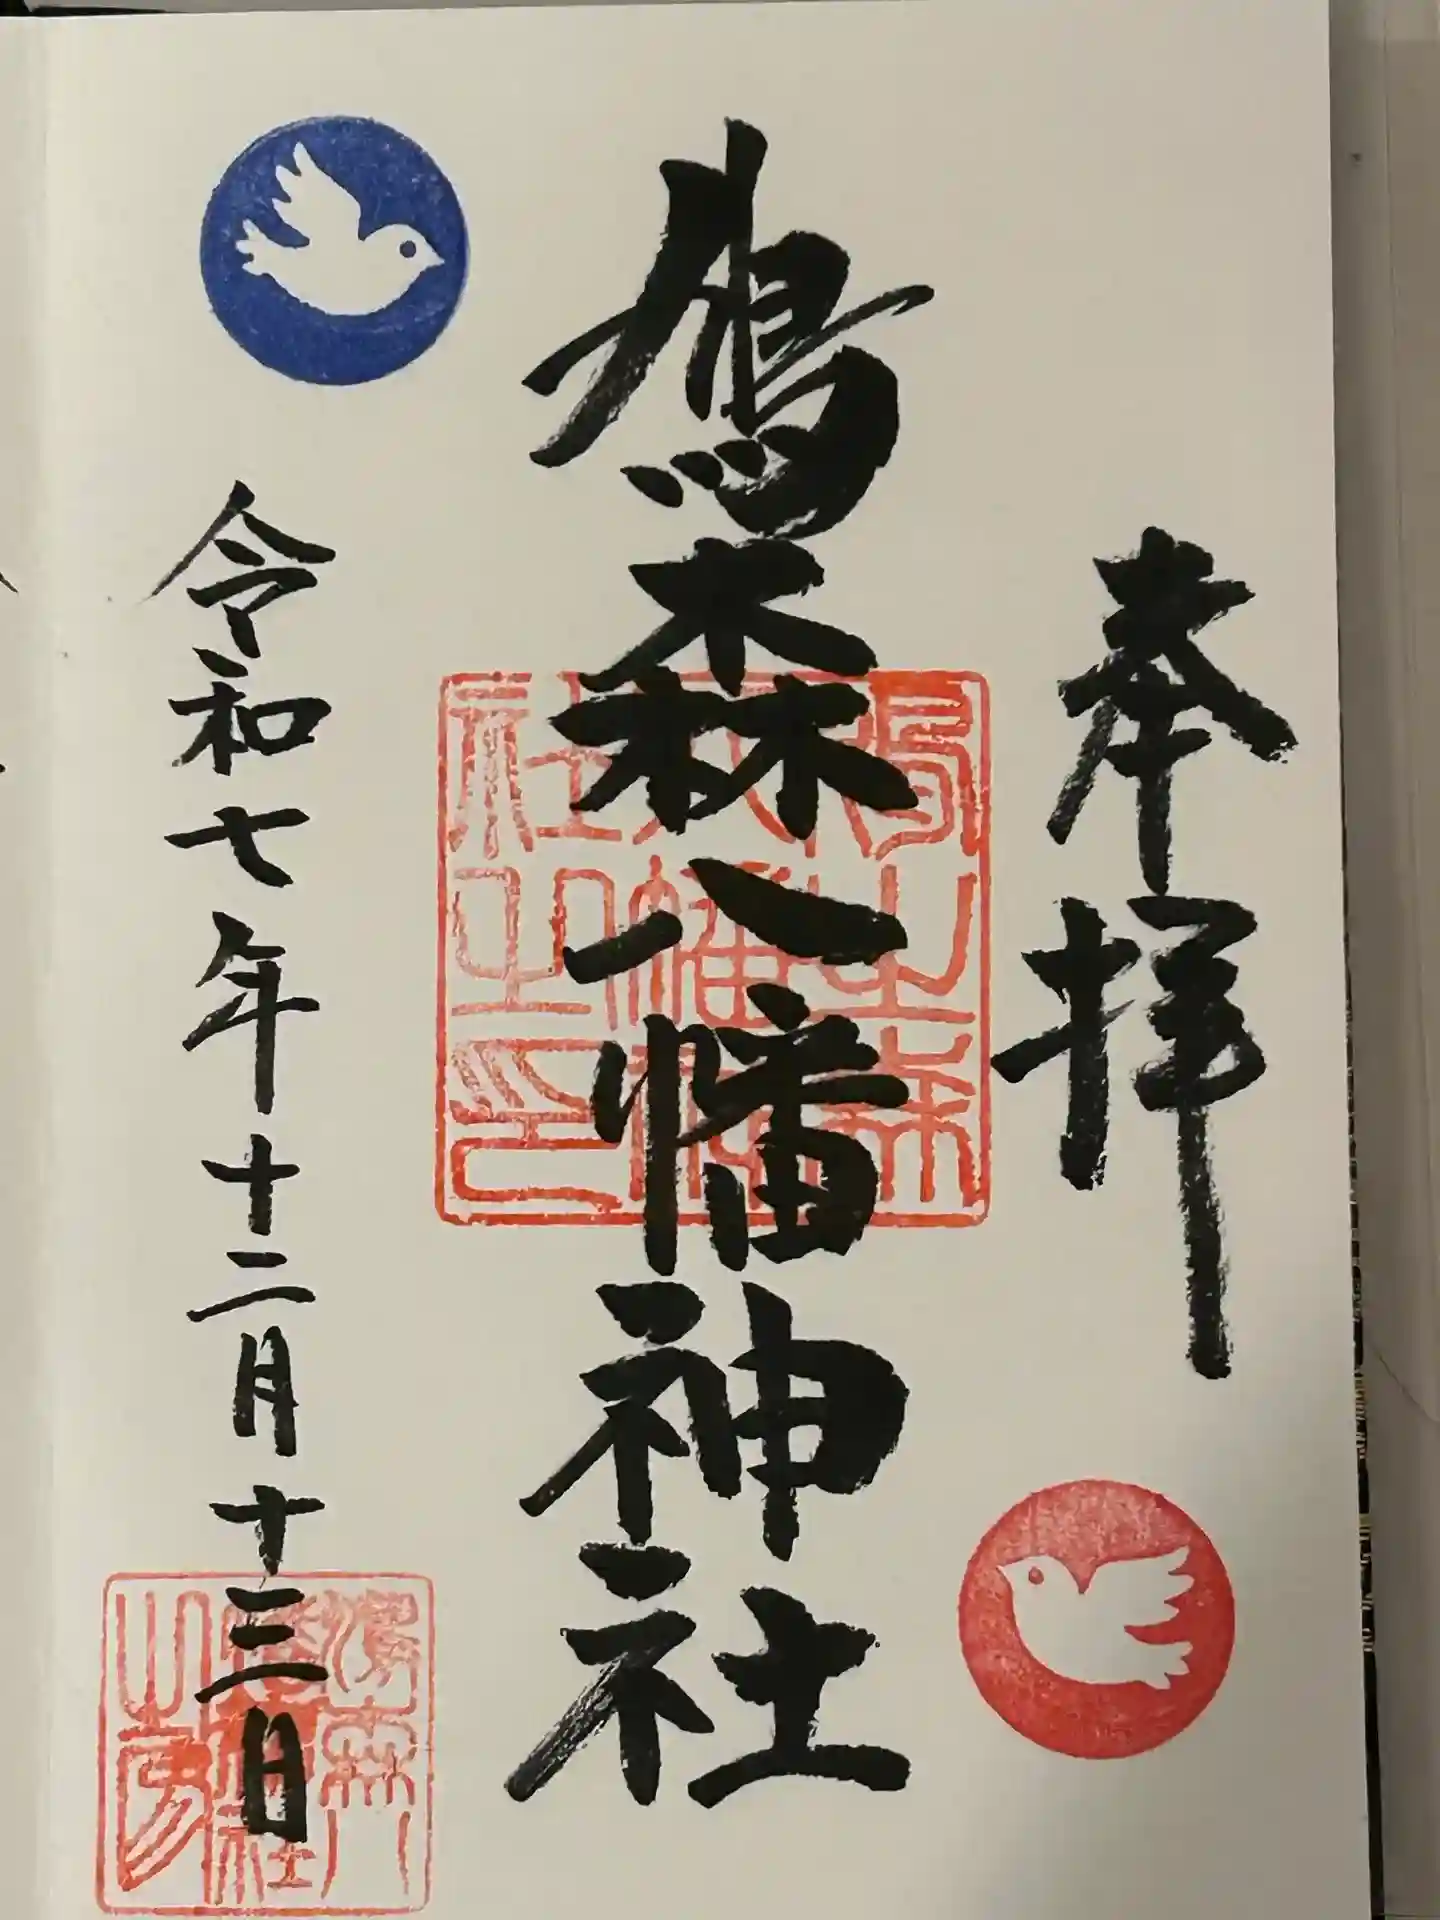 奉拝
鳩森八幡神社
令和七年十二月十三日